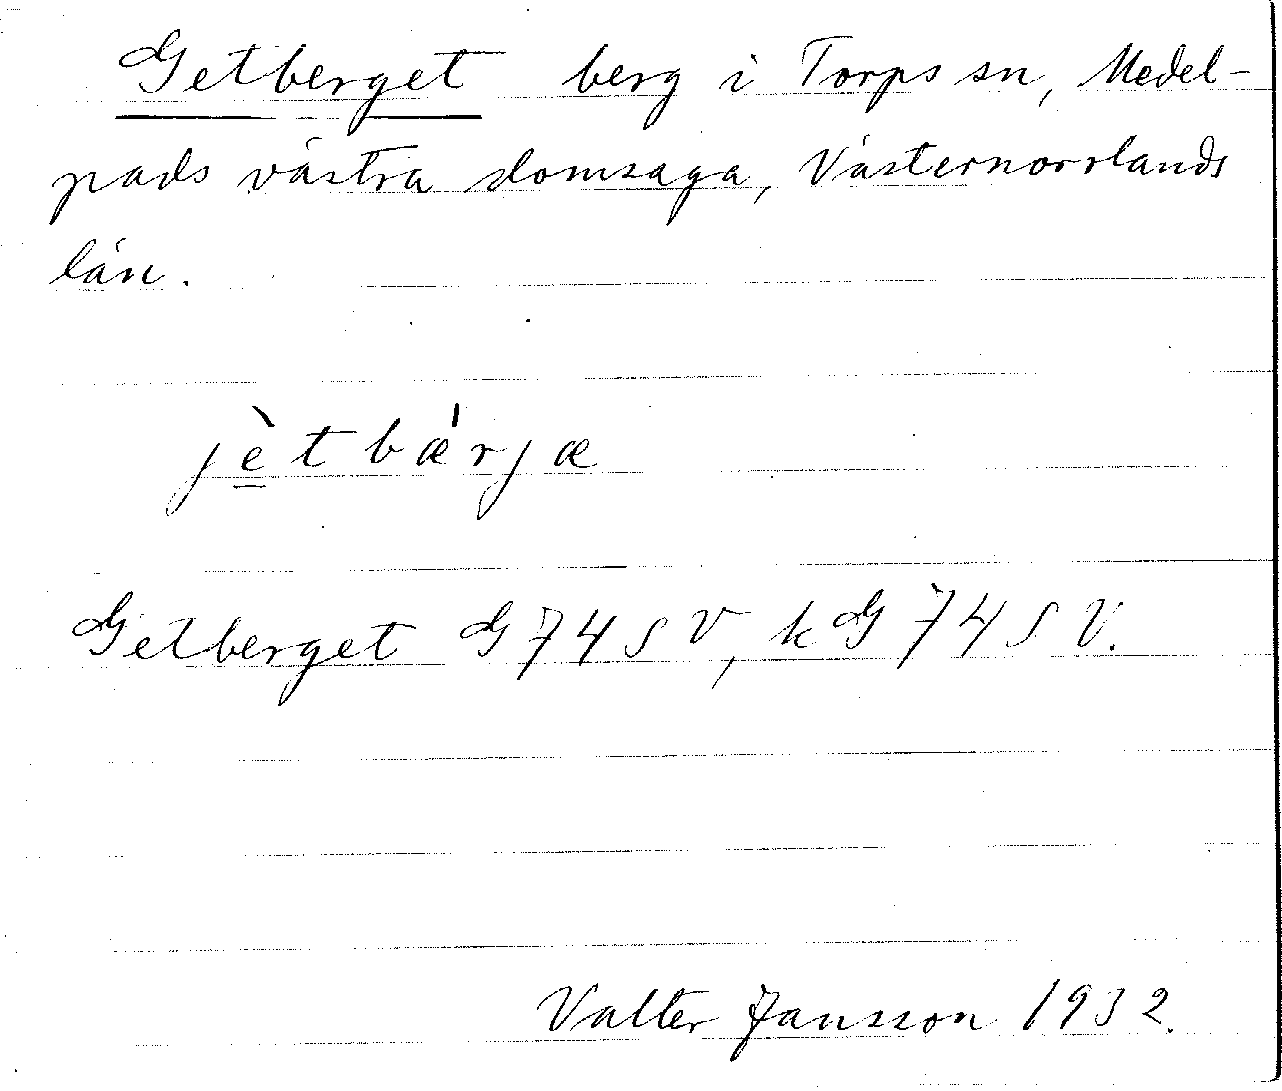 Getberget berg i Torps sn, Medel-
pads västra domsaga, Västernorrlands
län.
jètbǽrjæ
Getberget G74SV, kG74SV.
Valter Jansson 1932.